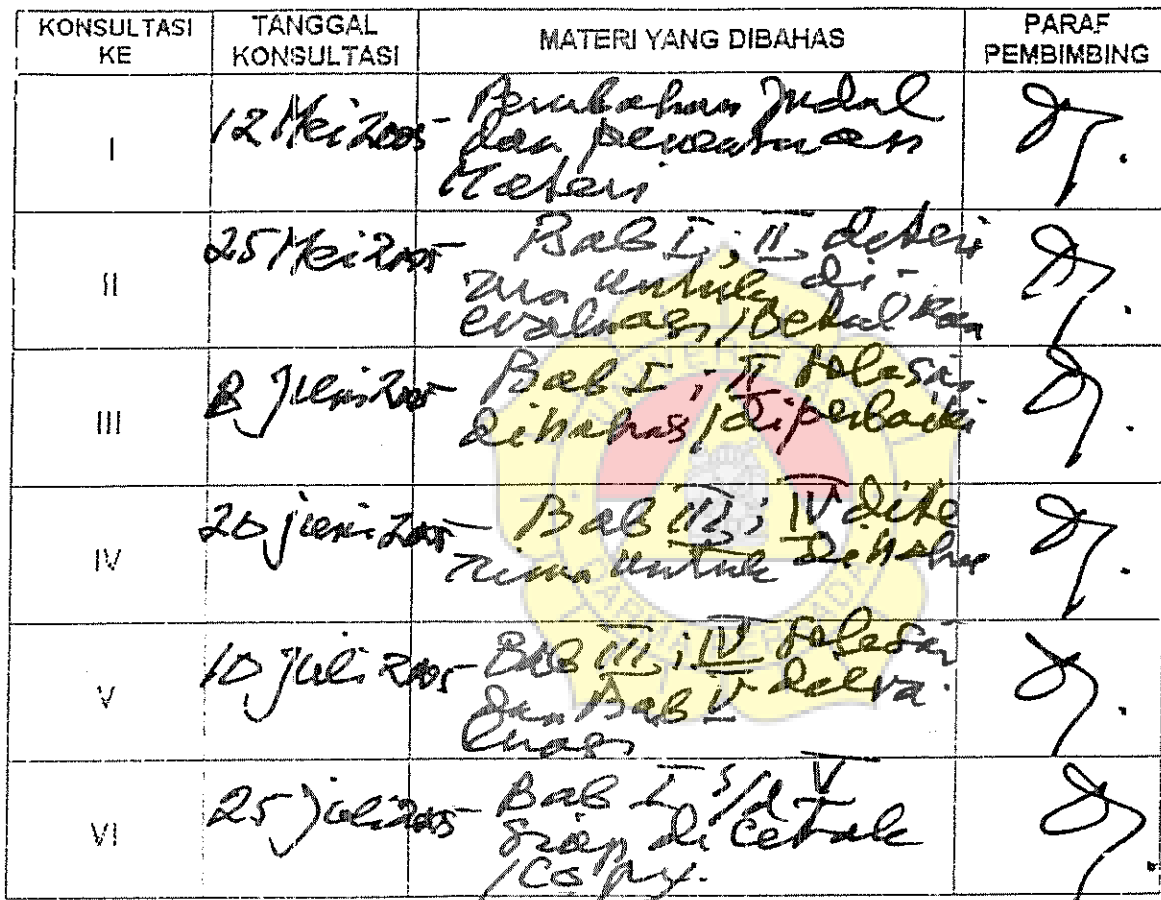 KONSULTASI KE
TANGGAL KONSULTASI
MATERI YANG DIBAHAS
PARAF PEMBIMBING
I
12 Mei 2005
Perubahan Judul
dan penentuan
Materi
II
25 Mei 2005
Bab I ; II diteri
ma untuk di-
evaluasi /betulkan
III
8 Juni 2005
Bab I ; II selesai
dibahas /diperbaiki
IV
20 Juni 2005
Bab III ; IV dite
rima untuk dibahas
V
10 Juli 2005
Bab III ; IV selesai
dan Bab V dieva
luasi
VI
25 Juli 2005
Bab I s/d V
siap di cetak
/Copy.
UNIVERSITAS
DARMA PERSADA